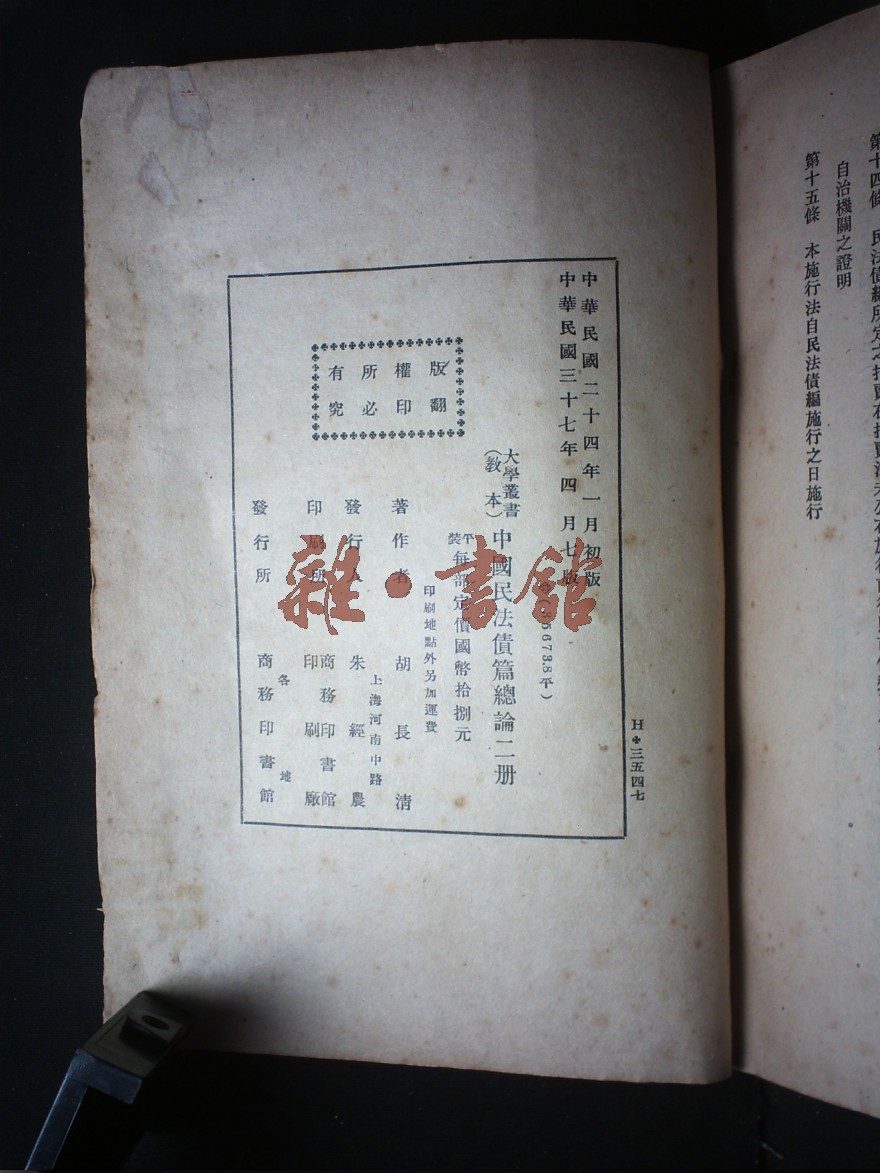 自治機關之證明
第十五條　本施行法自民法債編施行之日施行
H✤三五四七
中華民國二十四年一月初版
中華民國三十七年四月七版
大學叢書
（教本）
中國民法債篇總論二册
平裝
每部定價國幣拾捌元
印刷地點外另加運費
著作者　胡長清
上海河南中路
發行人　朱經農
印刷所　商務印書館
印刷廠
各地
發行所　商務印書館
版權所有
翻印必究
雜·書館